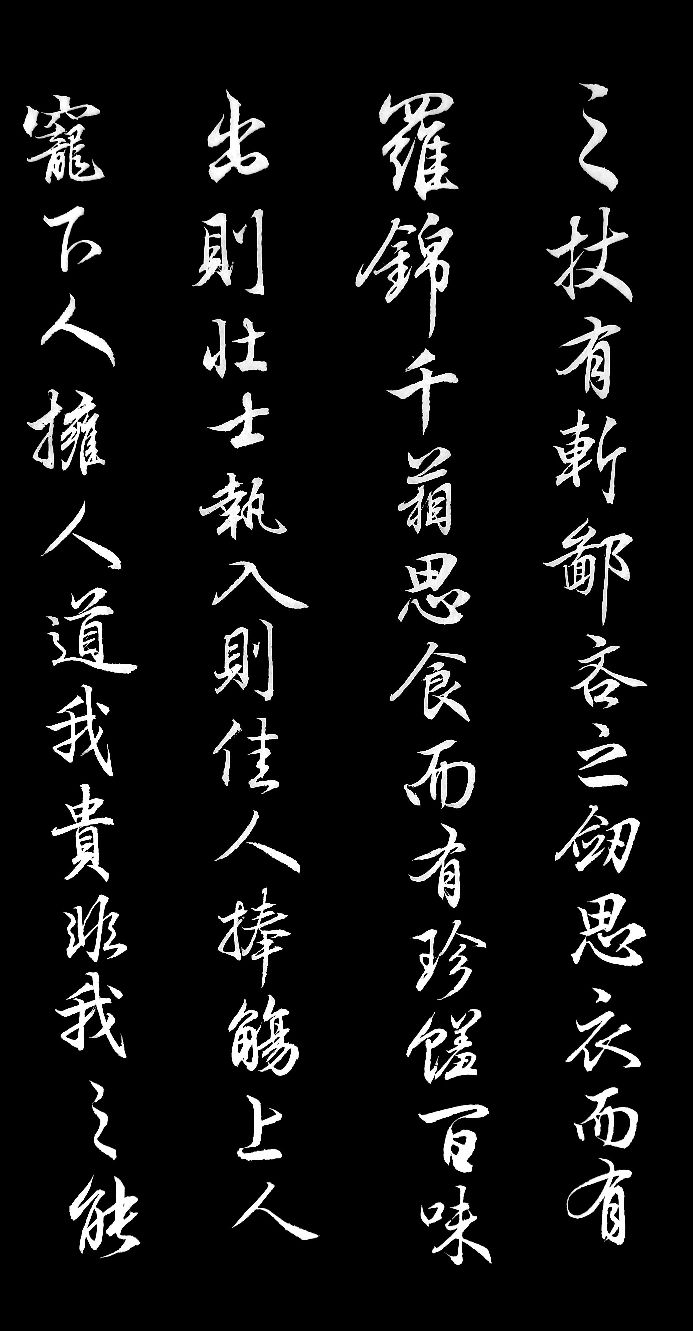 之杖有斬鄙吝之劒思衣而有
羅錦千箱思食而有珍饈百味
出則壯士執入則佳人捧觴上人
寵下人擁人道我貴非我之能